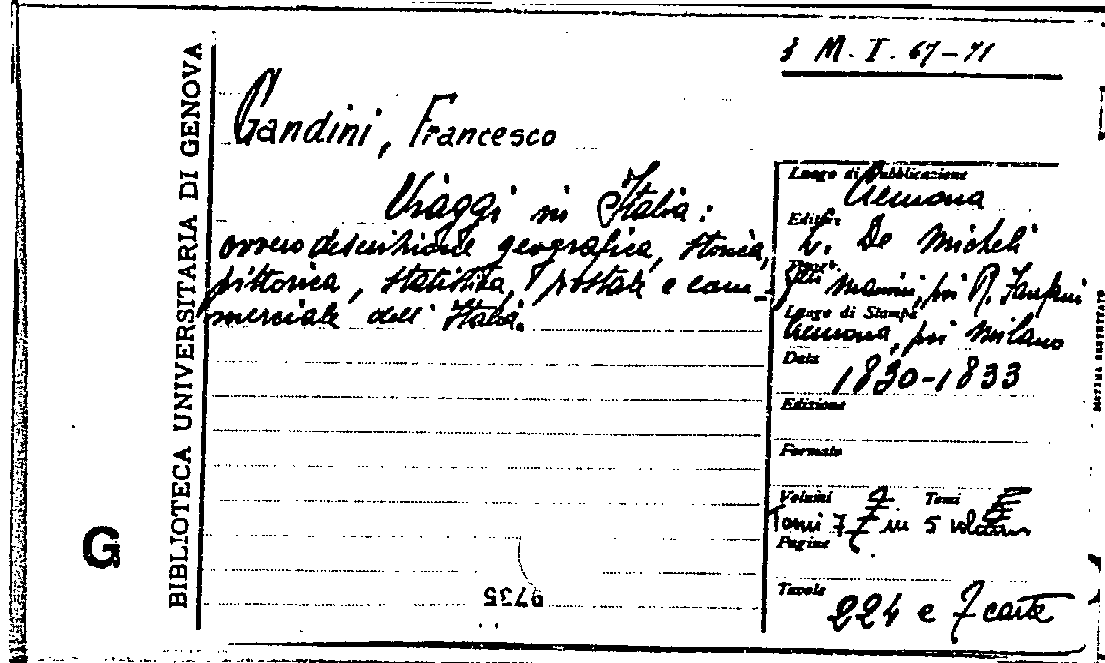 3 M. I. 67-71
BIBLIOTECA UNIVERSITARIA DI GENOVA
G
Gandini, Francesco
Viaggi in Italia:
ovvero descrizione geografica, storica,
pittorica, statistica, postale e com-
merciale dell' Italia.
9735
Luogo di Pubblicazione
Cremona
Editore
L. De Micheli
Manini, poi R. Fanfani
Luogo di Stampa
Cremona, poi Milano
Data
1830-1833
Edizione
Formato
Volumi Tomi
Tomi 7 in 5 volumi
Pagine
Tavole
224 e 7 carte